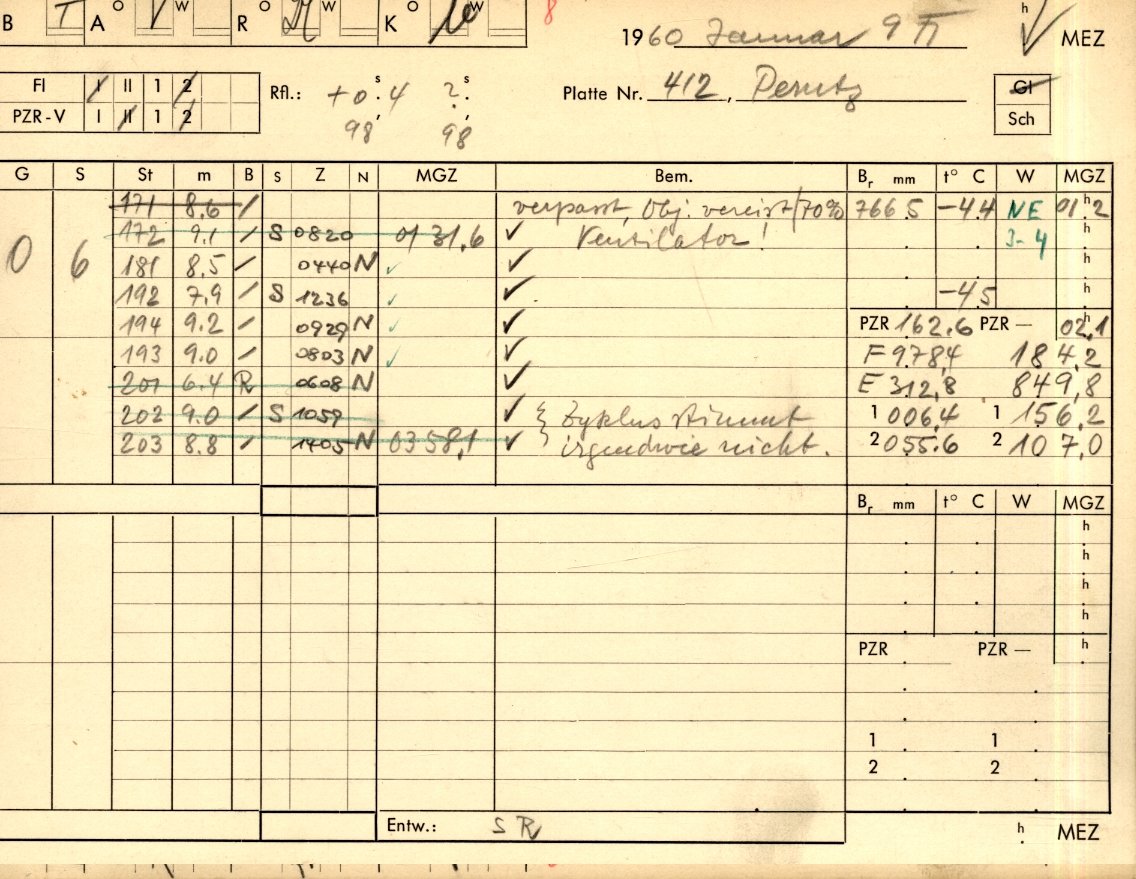 B T A O V W R O W K O W 8 h
1960 Januar 9 MEZ
FI I II 1 2 Rfl.: +0.4 s ?. s Platte Nr. 412, Perutz GI
PZR-V I II 1 2 98 98 Sch
G S St m B S Z N MGZ Bem. Br mm t° C W MGZ
171 8.6 / verpasst, Obj. vereist, 70% 766 5 -4.4 NE 01 h 2
0 6 172 9.1 / S 0820 01 31,6 ✓ Ventilator! 3-4
181 8,5 / 0440 N ✓ ✓ h
192 7.9 / S 1236 ✓ ✓ -4 5 h
194 9.2 / 0929 N ✓ ✓ PZR 162.6 PZR — 02 h 1
193 9.0 / 0803 N ✓ ✓ F 978,4 184,2
201 6.4 R 0608 N ✓ E 312,8 849,8
202 9.0 / S 1059 ✓ } Zyklus stimmt 1 006,4 1 156,2
203 8.8 / 1405 N 03 58,1 ✓ irgendwie nicht. 2 055.6 2 107,0
Br mm t° C W MGZ
h
h
h
h
PZR PZR — h
1 1
2 2
Entw.: S R h MEZ